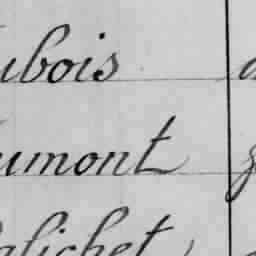 ubois
umont
alichet